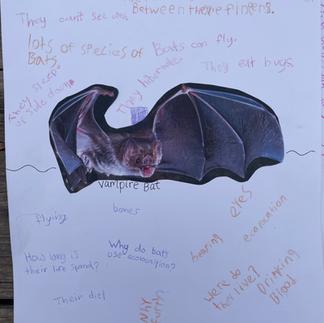 They can't see well
Between there fingers.
lots of species of
Bats.
Bats can fly.
They sleep
upside down
They hibernate
They eat bugs
Vampire Bat
flying
bones
eyes
ecorcation
hearing
How long is
their life spand?
Why do bats
use
Where do
they live?
Drinking
Blood
Their diet
Why